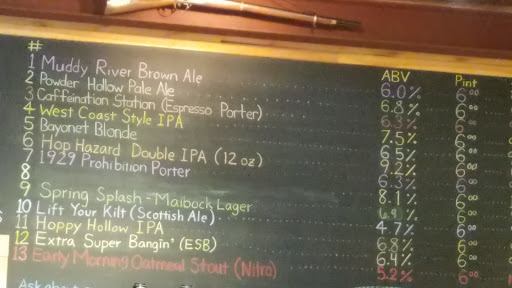 # ABV Pint
1 Muddy River Brown Ale 6.0% 6.00
2 Powder Hollow Pale Ale 6.8% 6.00
3 Caffeination Station (Espresso Porter) 6.3% 6.00
4 West Coast Style IPA 7.5% 6.00
5 Bayonet Blonde 6.5% 6.00
6 Hop Hazard Double IPA (12 oz) 7.2% 6.00
7 1929 Prohibition Porter 6.3% 6.00
8 8.1% 6.00
9 Spring Splash - Maibock Lager 6.9% 6.00
10 Lift Your Kilt (Scottish Ale) 4.7% 6.00
11 Hoppy Hollow IPA 6.8% 6.00
12 Extra Super Bangin' (ESB) 6.4% 6.00
13 Early Morning Oatmeal Stout (Nitro) 5.2% 6.00
Ask about